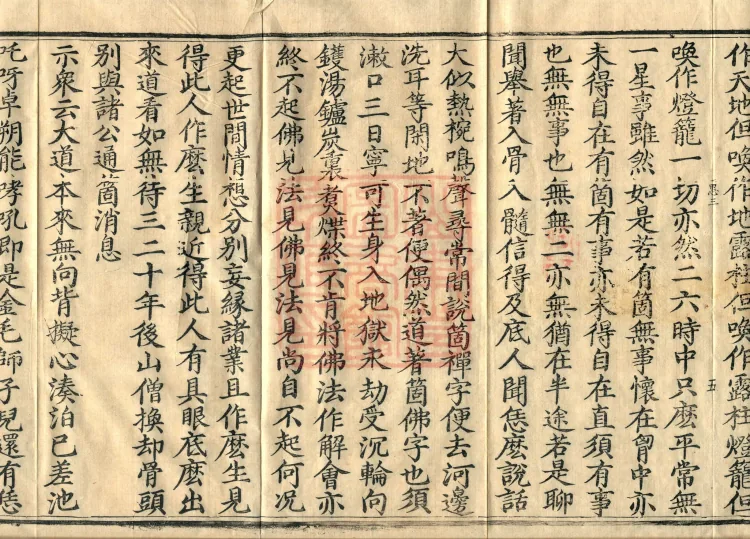 作天地但喚作地露柱但喚作露柱燈籠但
喚作燈籠一切亦然二六時中只麽平常無
一星事雖然如是若有箇無事懷在胷中亦
未得自在有箇有事亦未得自在直須有事
也無無事也無無二亦無猶在半途若是聊
聞舉著入骨入髓信得及底人聞恁麽說話
大似熱椀鳴聲尋常間說箇禪字便去河邊
洗耳等閑地不著便偶然道著箇佛字也須
漱口三日寧可生身入地獄永劫受沉輪向
鑊湯鑪炭裏煑煠終不肯將佛法作解會亦
終不起佛見法見佛見法見尚自不起何况
更起世間情想分別妄緣諸業且作麽生見
得此人作麽生親近得此人有具眼底麽出
來道看如無待三二十年後山僧換却骨頭
別與諸公通箇消息
示衆云大道本來無向背擬心湊泊已差池
吒呀卓朔能哮吼即是金毛師子兒還有恁
五